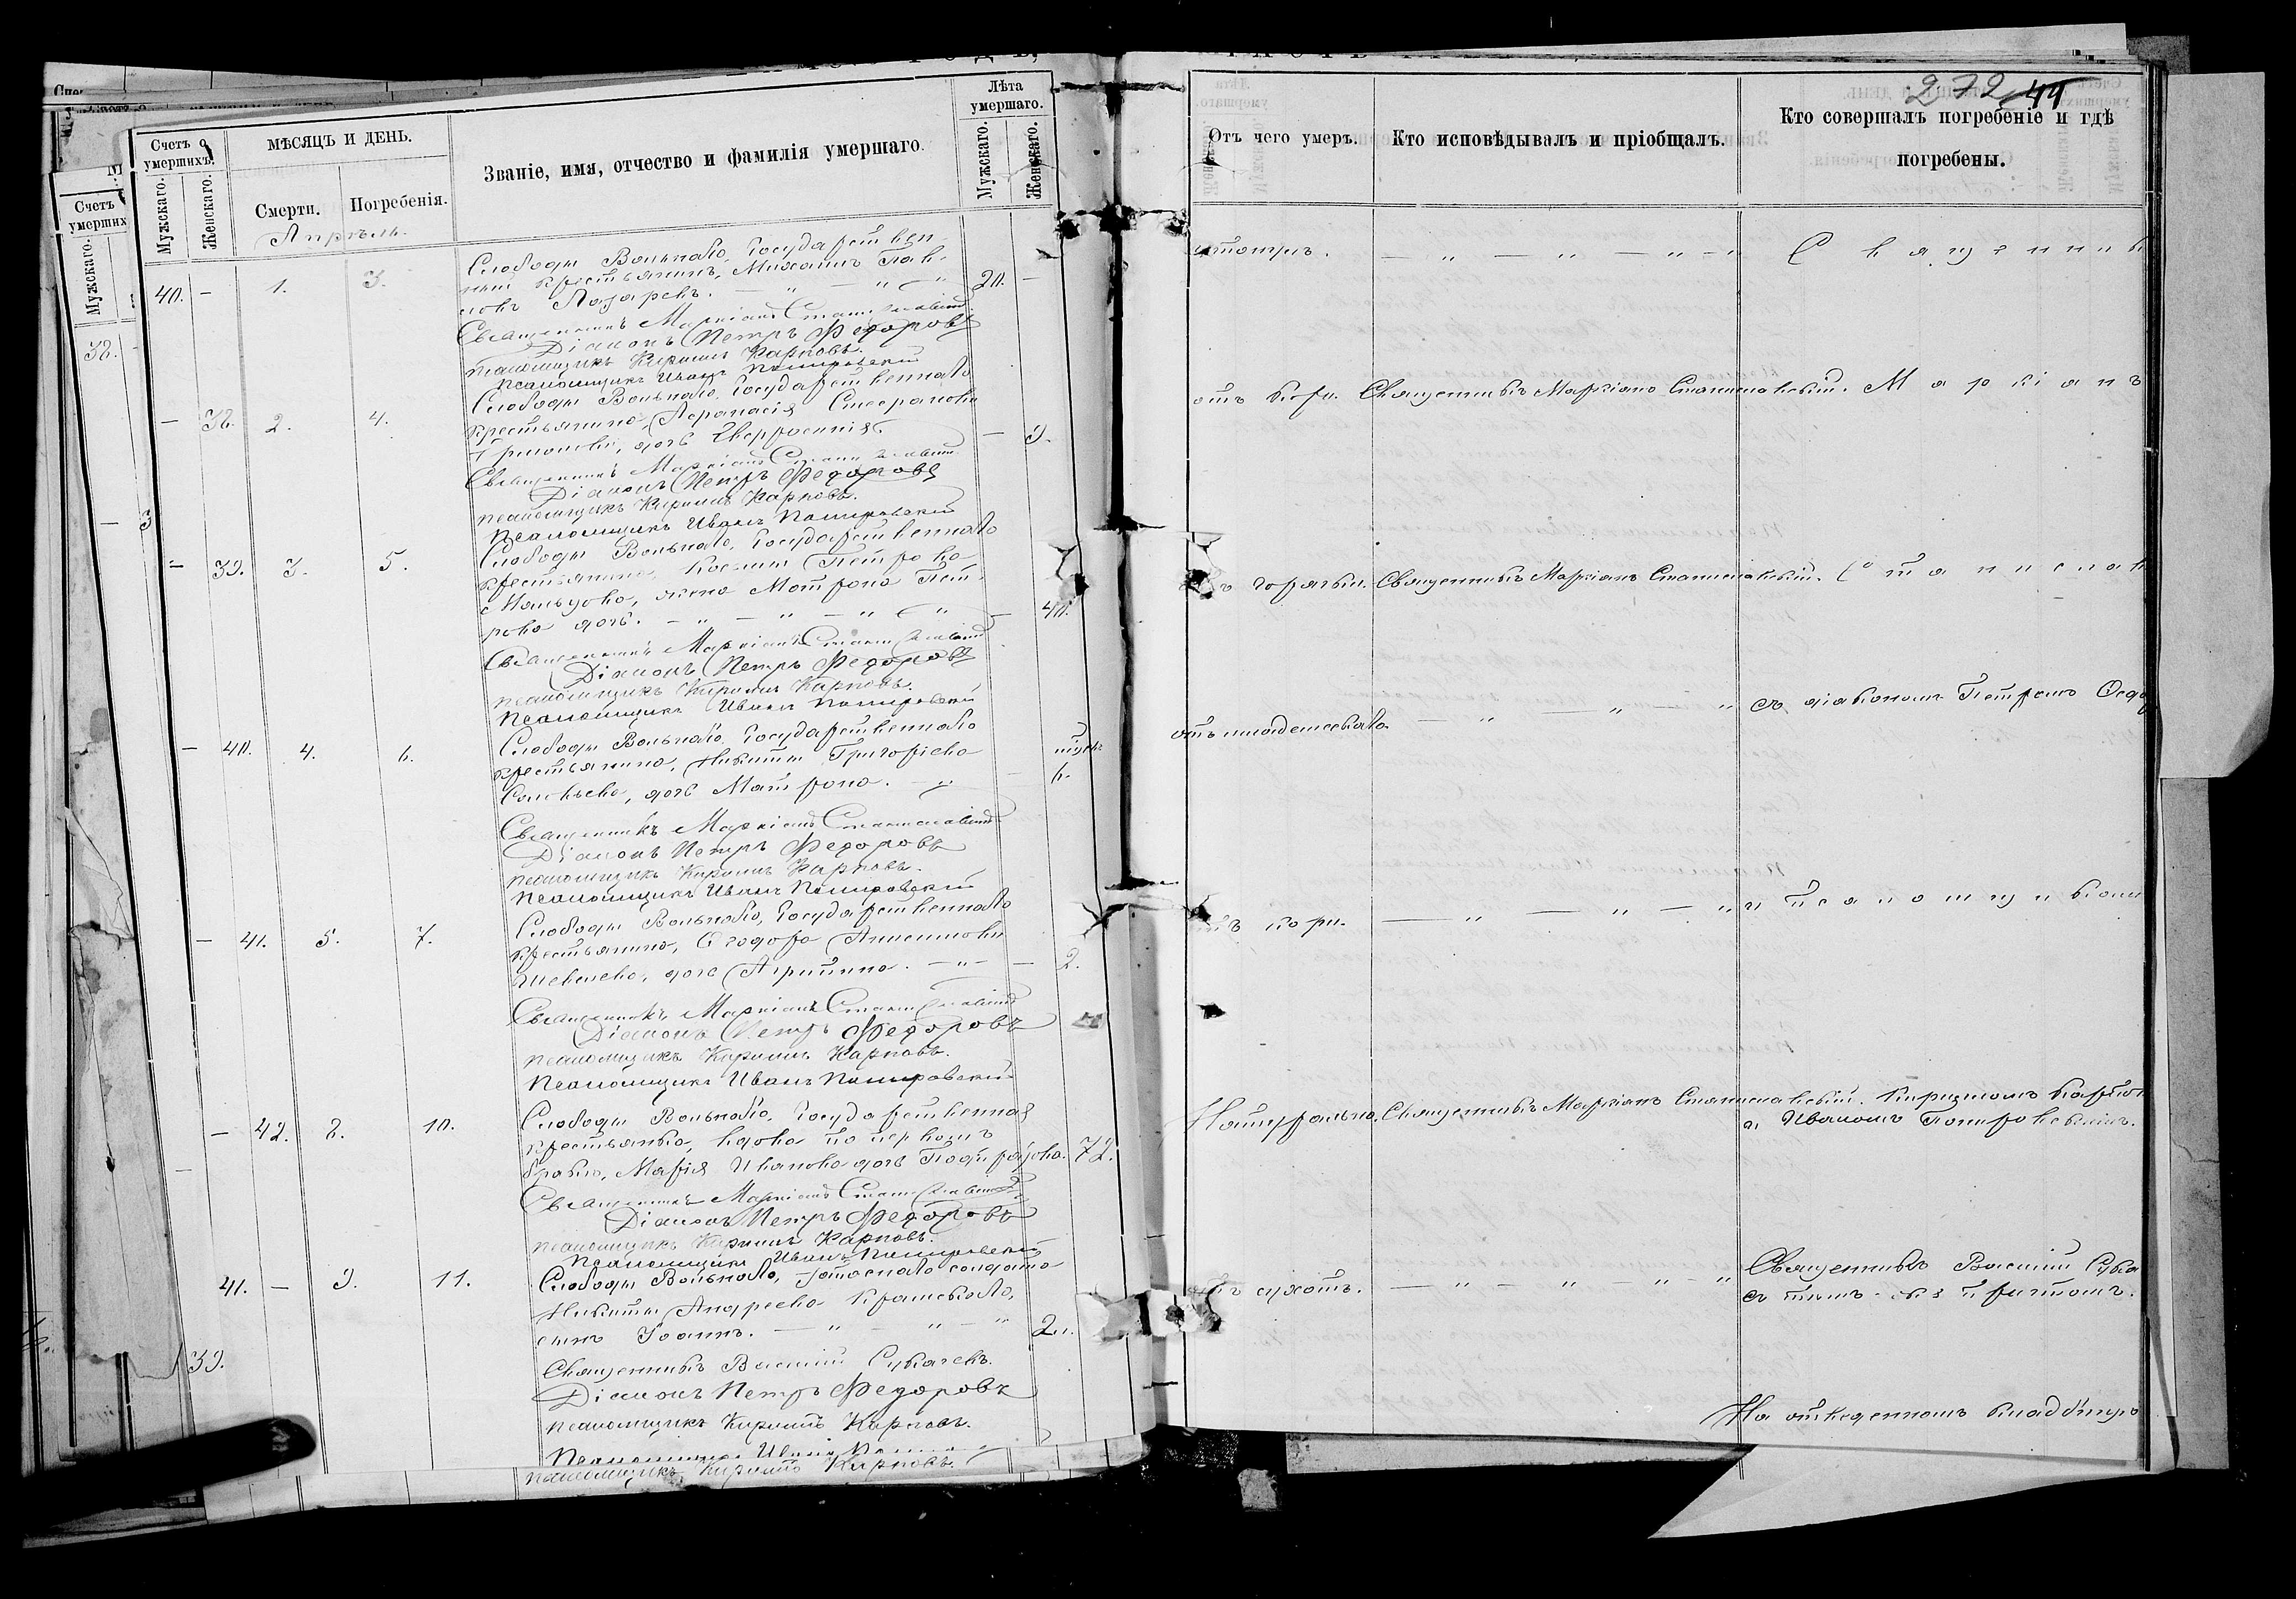 Счетъ о умершихъ.
МѢСЯЦЪ И ДЕНЬ.
Званіе, имя, отчество и фамилія умершаго.
Лѣта умершаго.
Мужскаго.
Женскаго.
Смерти.
Погребенія.
Мужскаго.
Женскаго.
Апрѣль.
Слободы Вольнаго, Государствен-
ный крестьянинъ, Михаилъ Пав-
ловъ Лазаревъ.
40. - 1. 3. 20. -
Священникъ Маркіанъ Станиславскій
Діаконъ Петръ Федоровъ
псаломщикъ Кириллъ Карповъ.
Псаломщикъ Иванъ Покировскій
Слободы Вольнаго, Государственнаго
крестьянина, Аѳанасія Стефанова
дочь Евфросинія.
- 38. 2. 4. - 9.
Священникъ Маркіанъ Станиславскій
Діаконъ Петръ Федоровъ
псаломщикъ Кириллъ Карповъ.
Псаломщикъ Иванъ Покировскій
Слободы Вольнаго, Государственнаго
крестьянина, Космы Петрова
Мальцова, жена Матрона Пет-
рова дочь.
- 39. 3. 5. - 40.
Священникъ Маркіанъ Станиславскій
Діаконъ Петръ Федоровъ
псаломщикъ Кириллъ Карповъ.
Псаломщикъ Иванъ Покировскій
Слободы Вольнаго, Государственнаго
крестьянина, Никиты Григорьева
Соловьева, дочь Матрона.
- 40. 4. 6. - 6.
Священникъ Маркіанъ Станиславскій
Діаконъ Петръ Федоровъ
псаломщикъ Кириллъ Карповъ.
Псаломщикъ Иванъ Покировскій
Слободы Вольнаго, Государственнаго
крестьянина, Ѳеодора Анисимова
Шевелева, дочь Агрипина.
- 41. 5. 7. - 2.
Священникъ Маркіанъ Станиславскій
Діаконъ Петръ Федоровъ
псаломщикъ Кириллъ Карповъ.
Псаломщикъ Иванъ Покировскій
Слободы Вольнаго, Государственная
крестьянка, вдова по первому
браку, Марія Иванова дочь
- 42. 8. 10. 72.
Священникъ Маркіанъ Станиславскій
Діаконъ Петръ Федоровъ
псаломщикъ Кириллъ Карповъ.
Псаломщикъ Иванъ Покировскій
Слободы Вольнаго, запаснаго солдата
Никиты Андреева
сынъ Іоаннъ.
41. - 9. 11.
Священникъ Василій Субачевъ.
Діаконъ Петръ Федоровъ
псаломщикъ Кириллъ Карповъ.
Псаломщикъ Иванъ
псаломщикъ Кириллъ Карповъ.
Счетъ
умерших
Мужскаго.
38.
39.
272 44
Отъ чего умеръ.
Кто исповѣдывалъ и пріобщалъ.
Кто совершалъ погребеніе и гдѣ
погребены.
утонулъ.
Священник
отъ кори. Священникъ Маркіанъ Станиславскій. Маркіанъ
горячки. Священникъ Маркіанъ Станиславскій. Станислав
отъ младенческаго.
съ діакономъ Петромъ Ѳедо
кори.
и псаломщиками
Натурально. Священникъ Маркіанъ Станиславскій. Кирилломъ Карпов
и Иваномъ Покировскимъ.
сухотъ.
Священникъ Василій Суба
съ тѣмъ-же причтомъ.
На отведенномъ кладбищѣ